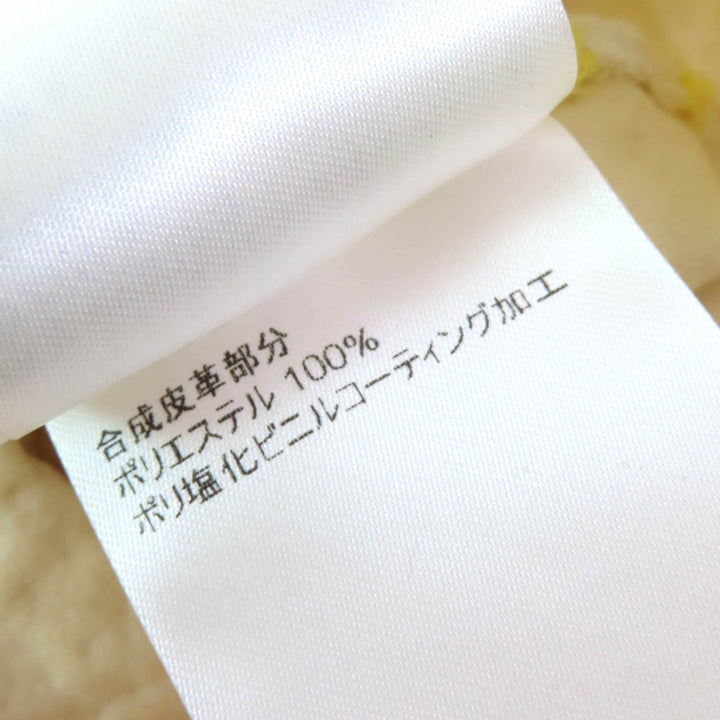 合成皮革部分
ポリエステル 100%
ポリ塩化ビニルコーティング加工